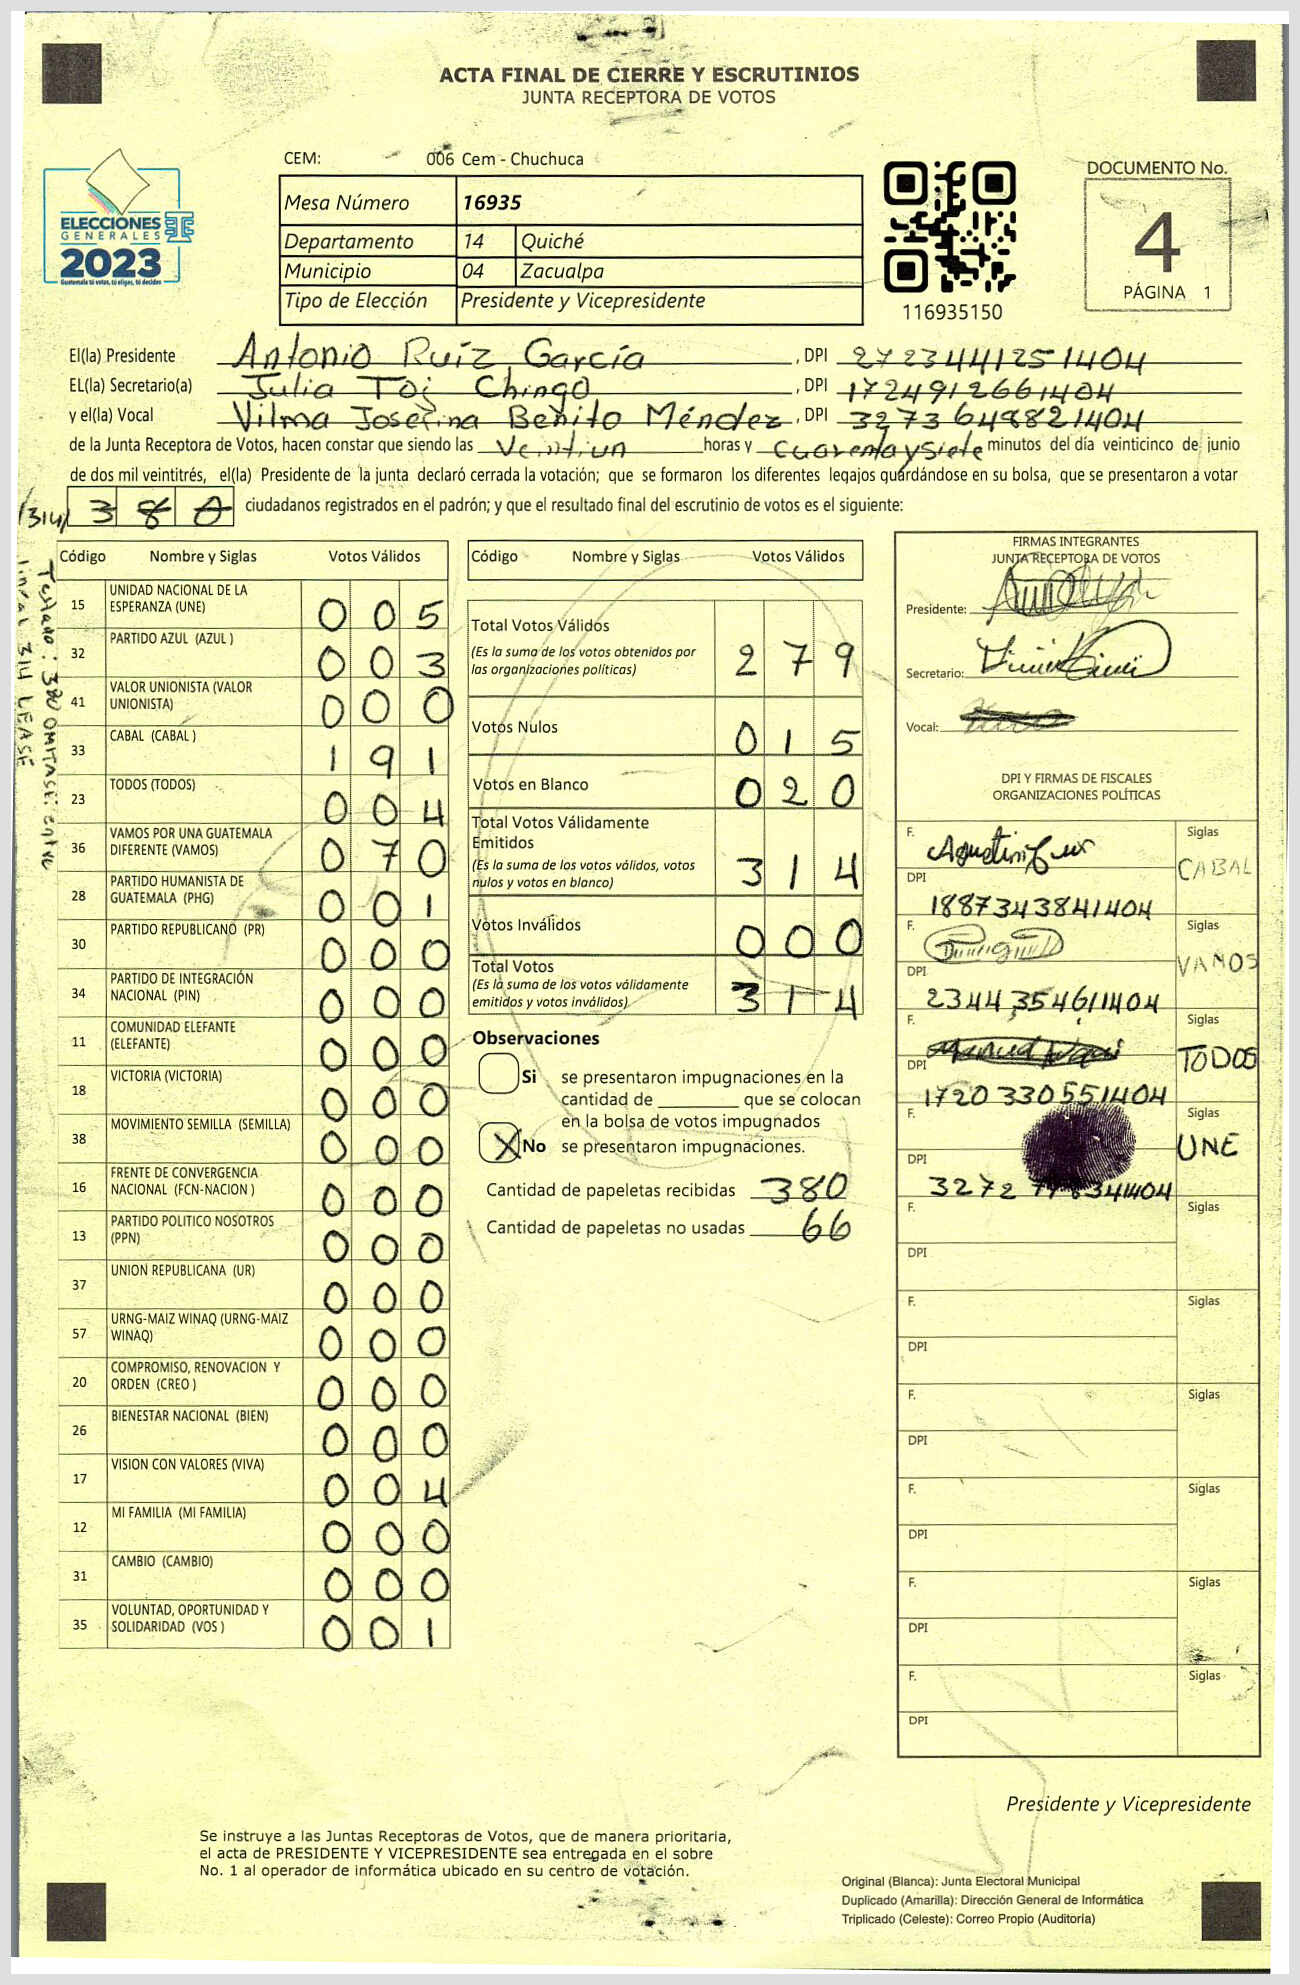 ACTA FINAL DE CIERRE Y ESCRUTINIOS
JUNTA RECEPTORA DE VOTOS
CEM: 006 Cem - Chuchuca
ELECCIONES
GENERALES
2023
Guatemala tú votas, tú eliges, tú decides
Mesa Número 16935
Departamento 14 Quiché
Municipio 04 Zacualpa
Tipo de Elección Presidente y Vicepresidente
116935150
DOCUMENTO No.
4
PÁGINA 1
El(la) Presidente Antonio Ruíz García , DPI 2723441251404
EL(la) Secretario(a) Julia Toj Chingo , DPI 1724912661404
y el(la) Vocal Vilma Josefina Benito Méndez , DPI 3273649821404
de la Junta Receptora de Votos, hacen constar que siendo las Veintiun horas y cuarenta y siete minutos del día veinticinco de junio
de dos mil veintitrés, el(la) Presidente de la junta declaró cerrada la votación; que se formaron los diferentes legajos guardándose en su bolsa, que se presentaron a votar
/314/ 3 8 0 ciudadanos registrados en el padrón; y que el resultado final del escrutinio de votos es el siguiente:
Testado: 380 OMITASE: entre
linea: 314 LEASE
Código Nombre y Siglas Votos Válidos
15 UNIDAD NACIONAL DE LA ESPERANZA (UNE) 0 0 5
32 PARTIDO AZUL (AZUL ) 0 0 3
41 VALOR UNIONISTA (VALOR UNIONISTA) 0 0 0
33 CABAL (CABAL ) 1 9 1
23 TODOS (TODOS) 0 0 4
36 VAMOS POR UNA GUATEMALA DIFERENTE (VAMOS) 0 7 0
28 PARTIDO HUMANISTA DE GUATEMALA (PHG) 0 0 1
30 PARTIDO REPUBLICANO (PR) 0 0 0
34 PARTIDO DE INTEGRACIÓN NACIONAL (PIN) 0 0 0
11 COMUNIDAD ELEFANTE (ELEFANTE) 0 0 0
18 VICTORIA (VICTORIA) 0 0 0
38 MOVIMIENTO SEMILLA (SEMILLA) 0 0 0
16 FRENTE DE CONVERGENCIA NACIONAL (FCN-NACION ) 0 0 0
13 PARTIDO POLITICO NOSOTROS (PPN) 0 0 0
37 UNION REPUBLICANA (UR) 0 0 0
57 URNG-MAIZ WINAQ (URNG-MAIZ WINAQ) 0 0 0
20 COMPROMISO, RENOVACION Y ORDEN (CREO ) 0 0 0
26 BIENESTAR NACIONAL (BIEN) 0 0 0
17 VISION CON VALORES (VIVA) 0 0 4
12 MI FAMILIA (MI FAMILIA) 0 0 0
31 CAMBIO (CAMBIO) 0 0 0
35 VOLUNTAD, OPORTUNIDAD Y SOLIDARIDAD (VOS ) 0 0 1
Código Nombre y Siglas Votos Válidos
Total Votos Válidos 2 7 9
(Es la suma de los votos obtenidos por
las organizaciones políticas)
Votos Nulos 0 1 5
Votos en Blanco 0 2 0
Total Votos Válidamente
Emitidos 3 1 4
(Es la suma de los votos válidos, votos
nulos y votos en blanco)
Votos Inválidos 0 0 0
Total Votos 3 1 4
(Es la suma de los votos válidamente
emitidos y votos inválidos)
Observaciones
Si se presentaron impugnaciones en la
cantidad de ________ que se colocan
en la bolsa de votos impugnados
X No se presentaron impugnaciones.
Cantidad de papeletas recibidas 380
Cantidad de papeletas no usadas 66
FIRMAS INTEGRANTES
JUNTA RECEPTORA DE VOTOS
Presidente:
Secretario:
Vocal:
DPI Y FIRMAS DE FISCALES
ORGANIZACIONES POLÍTICAS
F. Siglas
CABAL
DPI
1887343841404
F. Siglas
VAMOS
DPI
2344354611404
F. Siglas
TODOS
DPI
1720330551404
F. Siglas
UNE
DPI
3272 341404
F. Siglas
DPI
F. Siglas
DPI
F. Siglas
DPI
F. Siglas
DPI
F. Siglas
DPI
F. Siglas
DPI
Presidente y Vicepresidente
Se instruye a las Juntas Receptoras de Votos, que de manera prioritaria,
el acta de PRESIDENTE Y VICEPRESIDENTE sea entregada en el sobre
No. 1 al operador de informática ubicado en su centro de votación.
Original (Blanca): Junta Electoral Municipal
Duplicado (Amarilla): Dirección General de Informática
Triplicado (Celeste): Correo Propio (Auditoría)